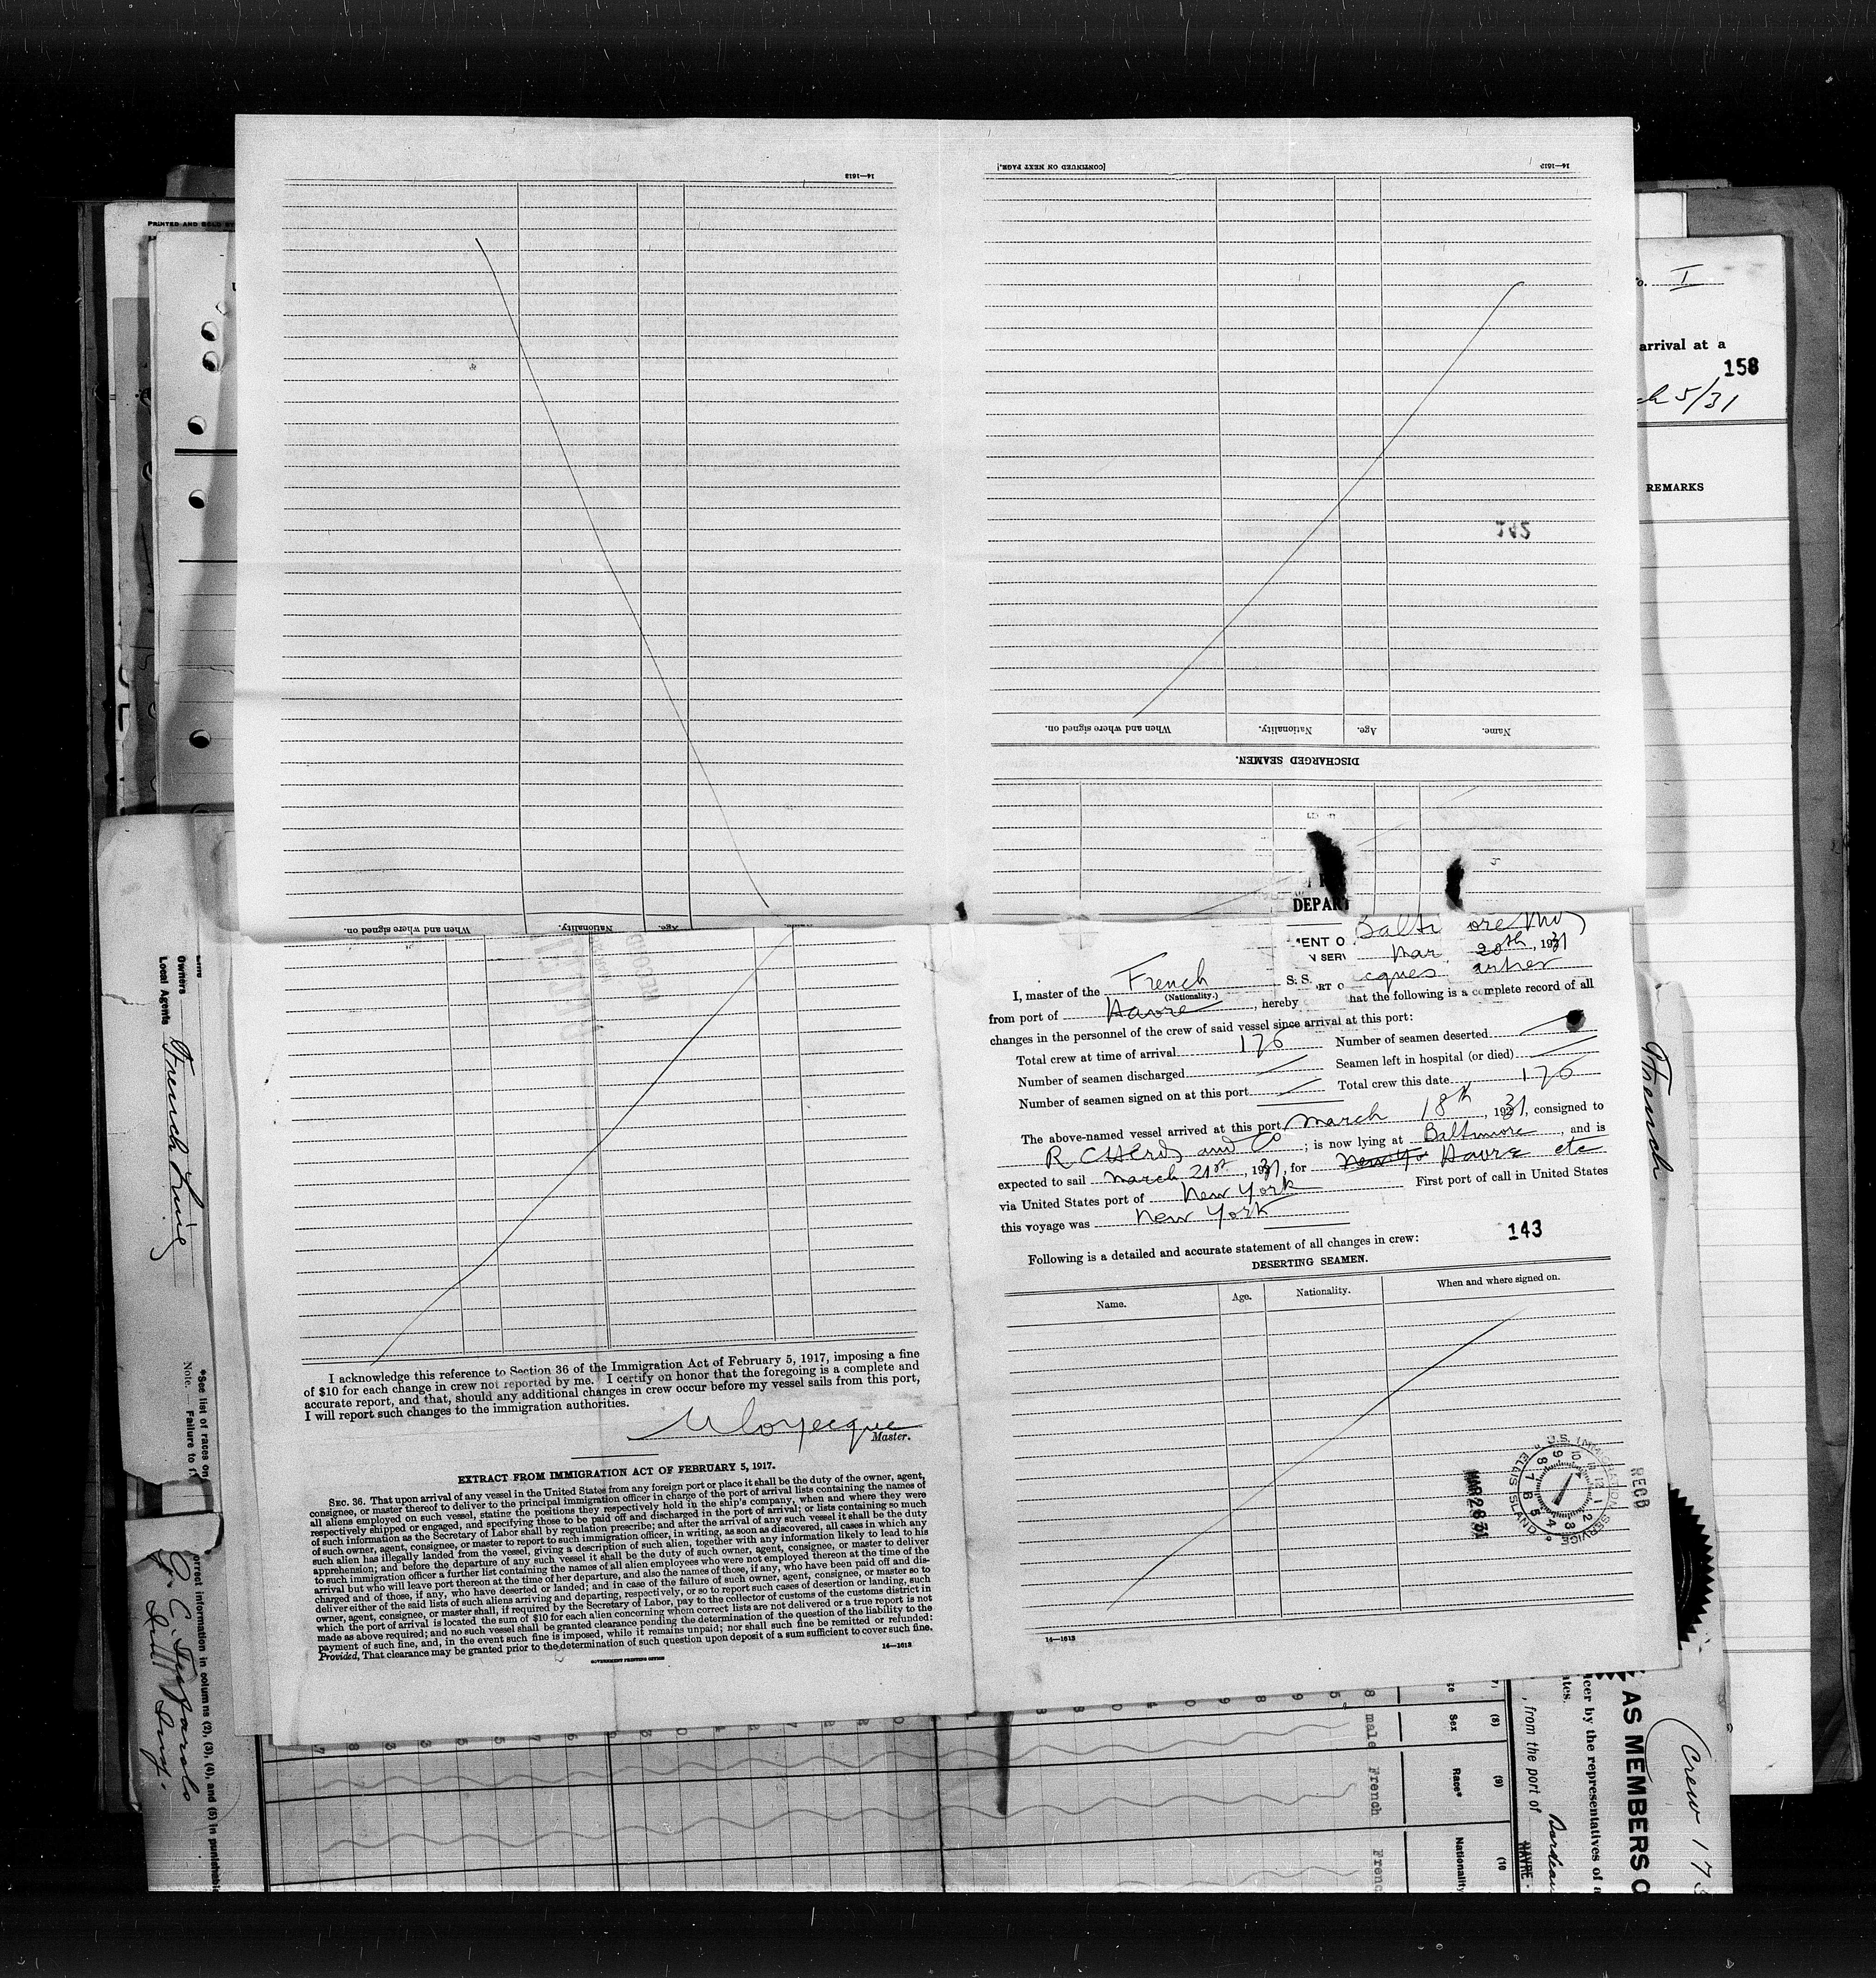 14—1613
[CONTINUED ON NEXT PAGE.]
14—1613
PRINTED AND SOLD BY
I
arrival at a
158
5/31
REMARKS
Name.
Age.
Nationality.
When and where signed on.
DISCHARGED SEAMEN.
When and where signed on.
Nationality.
Age.
DEPAR
Baltimore Md
Mar. 20th, 1931
I, master of the French S. S. cques artier
(Nationality.)
from port of Havre, hereby hat the following is a complete record of all
changes in the personnel of the crew of said vessel since arrival at this port:
Total crew at time of arrival 176 Number of seamen deserted
Number of seamen discharged Seamen left in hospital (or died)
Number of seamen signed on at this port Total crew this date 176
The above-named vessel arrived at this port March 18th, 1931, consigned to
and Co; is now lying at Baltimore, and is
expected to sail March 21st, 1931, for New Yo Havre etc
via United States port of New York First port of call in United States
this voyage was New York
143
Following is a detailed and accurate statement of all changes in crew:
DESERTING SEAMEN.
Name. Age. Nationality. When and where signed on.
RECD
MAR 26 31
U.S. IMMIGRATION SERVICE
ELLIS ISLAND
14—1613
I acknowledge this reference to Section 36 of the Immigration Act of February 5, 1917, imposing a fine
of $10 for each change in crew not reported by me. I certify on honor that the foregoing is a complete and
accurate report, and that, should any additional changes in crew occur before my vessel sails from this port,
I will report such changes to the immigration authorities.
Master.
EXTRACT FROM IMMIGRATION ACT OF FEBRUARY 5, 1917.
SEC. 36. That upon arrival of any vessel in the United States from any foreign port or place it shall be the duty of the owner, agent,
consignee, or master thereof to deliver to the principal immigration officer in charge of the port of arrival lists containing the names of
all aliens employed on such vessel, stating the positions they respectively hold in the ship's company, when and where they were
respectively shipped or engaged, and specifying those to be paid off and discharged in the port of arrival; or lists containing so much
of such information as the Secretary of Labor shall by regulation prescribe; and after the arrival of any such vessel it shall be the duty
of such owner, agent, consignee, or master to report to such immigration officer, in writing, as soon as discovered, all cases in which any
such alien has illegally landed from the vessel, giving a description of such alien, together with any information likely to lead to his
apprehension; and before the departure of any such vessel it shall be the duty of such owner, agent, consignee, or master to deliver
to such immigration officer a further list containing the names of all alien employees who were not employed thereon at the time of the
arrival but who will leave port thereon at the time of her departure, and also the names of those, if any, who have been paid off and dis-
charged and of those, if any, who have deserted or landed; and in case of the failure of such owner, agent, consignee, or master so to
deliver either of the said lists of such aliens arriving and departing, respectively, or so to report such cases of desertion or landing, such
owner, agent, consignee, or master shall, if required by the Secretary of Labor, pay to the collector of customs of the customs district in
which the port of arrival is located the sum of $10 for each alien concerning whom correct lists are not delivered or a true report is not
made as above required; and no such vessel shall be granted clearance pending the determination of the question of the liability to the
payment of such fine, and, in the event such fine is imposed, while it remains unpaid; nor shall such fine be remitted or refunded:
Provided, That clearance may be granted prior to the determination of such question upon deposit of a sum sufficient to cover such fine.
GOVERNMENT PRINTING OFFICE
14—1613
Owners
Local Agents
French Line
*See list of races on
Note. Failure to f
orrect information in columns (2), (3), (4), and (5) is punishable
French
Crew 17
AS MEMBERS O
cer by the representatives of a
, from the port of Bordeau
HAVRE
(8) Sex male
(9) Race* French
(10 Nationality Frenc